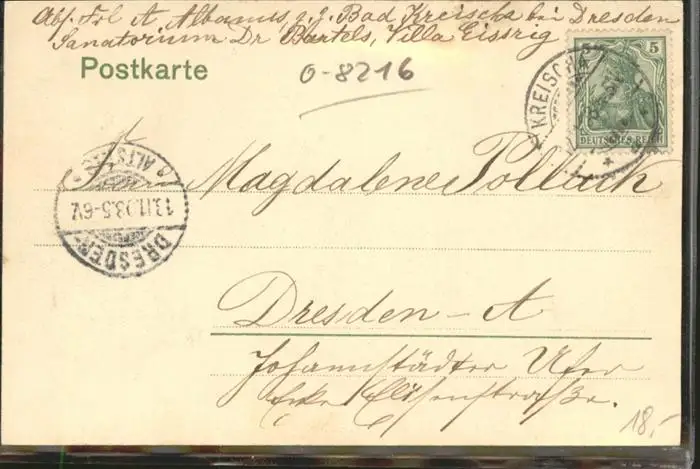 Abs. Frl. A Albanus, z. Z. Bad Kreischa bei Dresden
Sanatorium Dr Bartels, Villa Eissrig
Postkarte
0-8216
5
DEUTSCHES REICH
KREISCHA
Magdalene Pollack
ALTST.
13.11.03.5-6V.
DRESDEN
Dresden-A
Johannstädter Ufer
Ecke Elisenstraße.
18,-